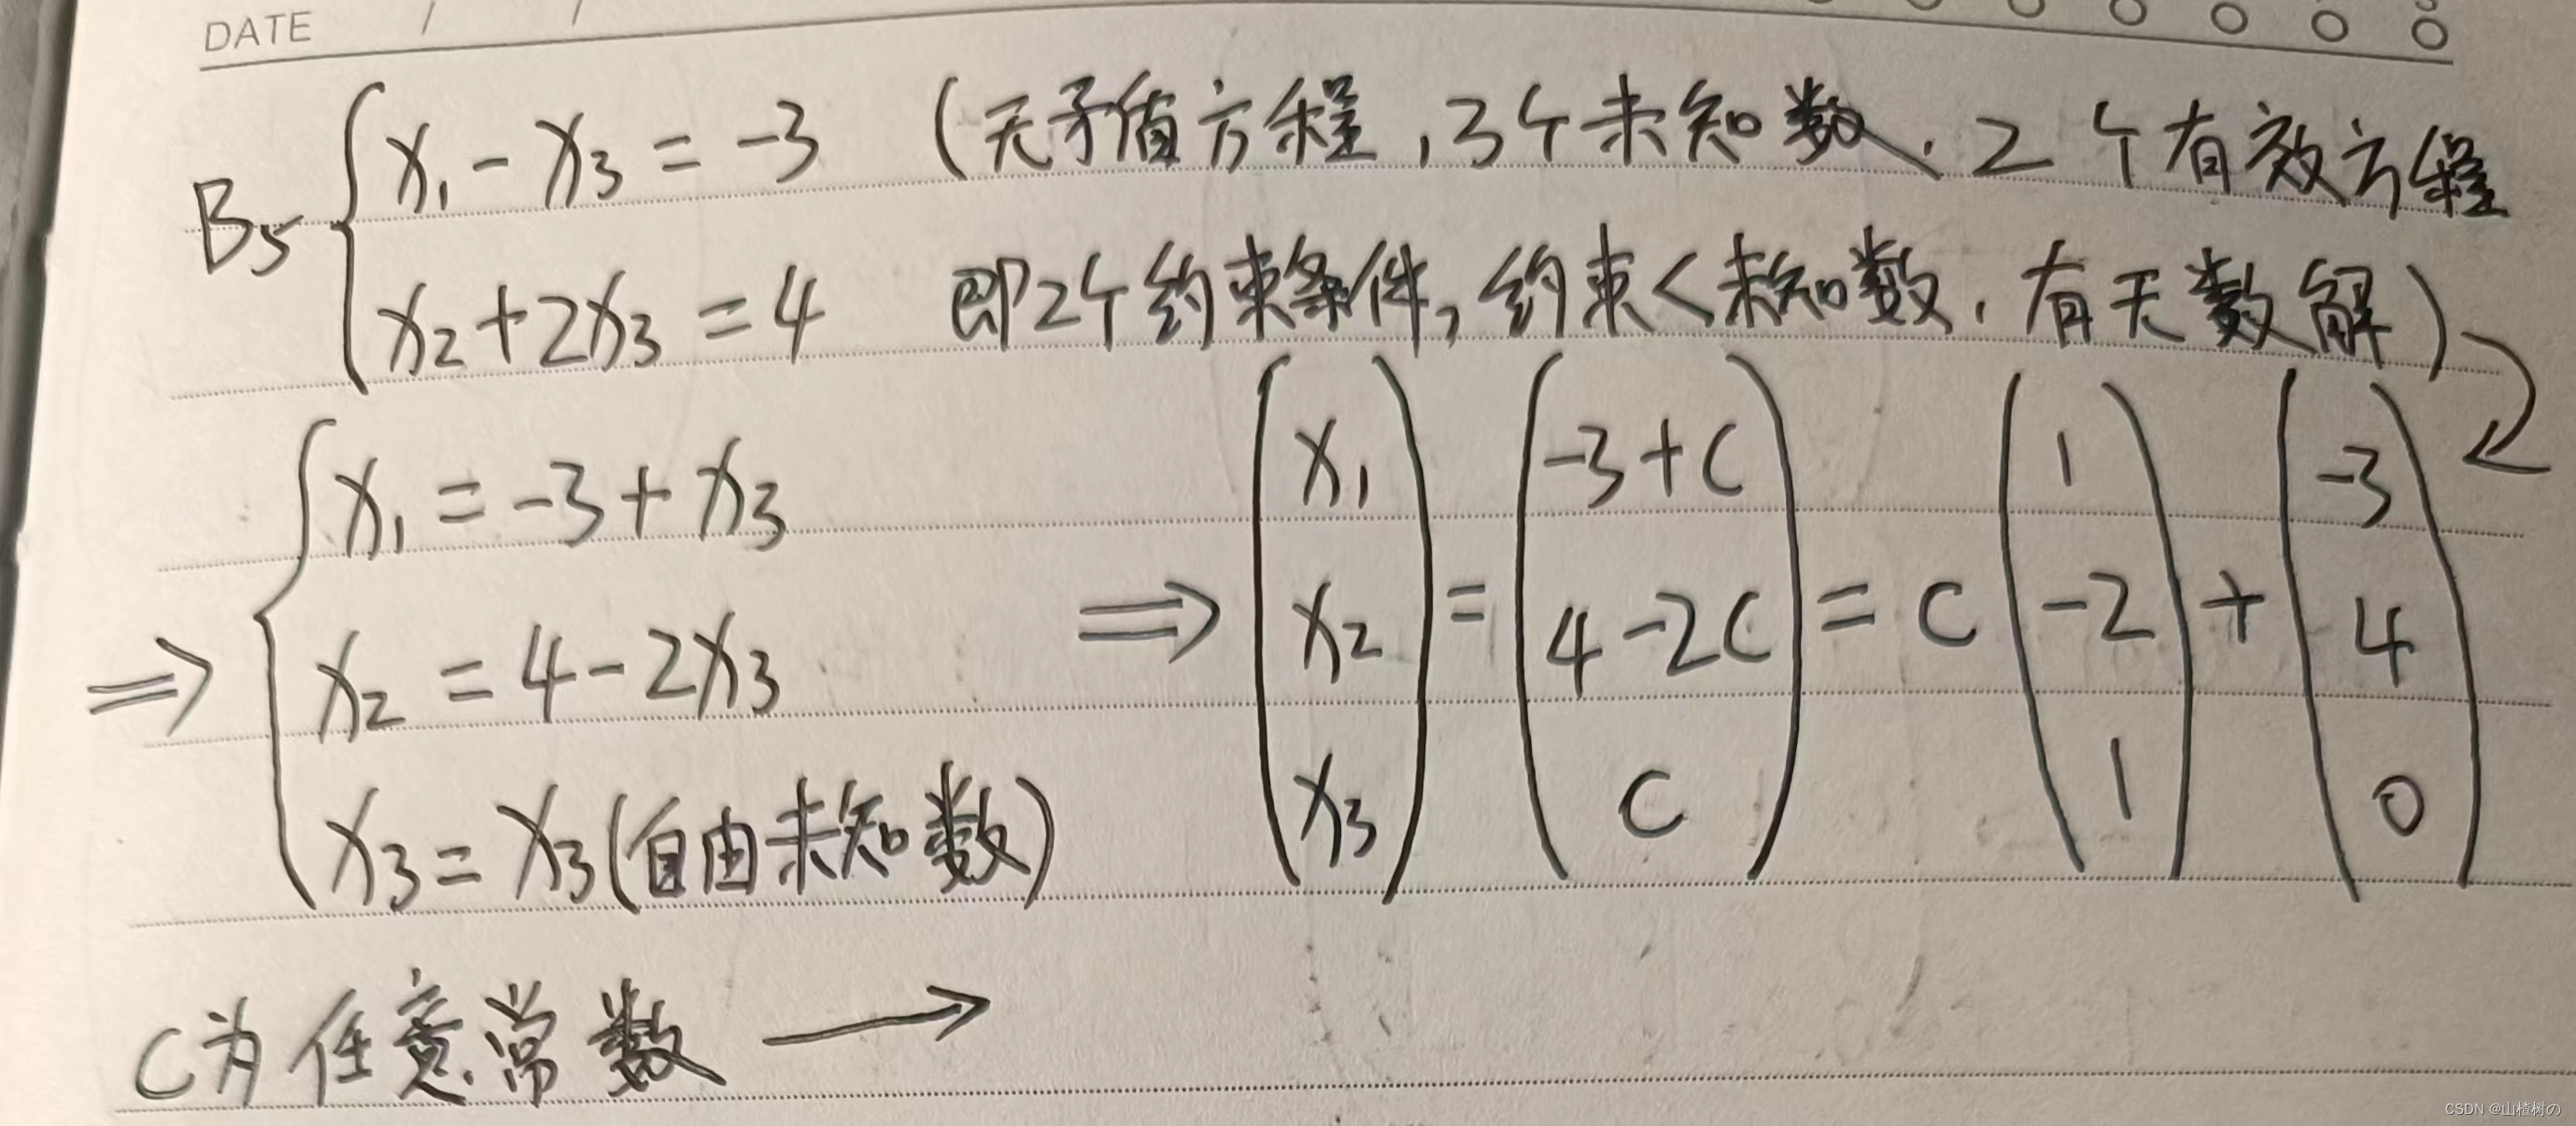 DATE / /
B5 { x₁ - x₃ = -3 (无矛盾方程,3个未知数.2个有效方程
x₂ + 2x₃ = 4 即2个约束条件,约束<未知数.有无数解)
x₁ = -3 + x₃
⇒ { x₂ = 4 - 2x₃
x₃ = x₃ (自由未知数)
⇒ (x₁ x₂ x₃) = (-3+C 4-2C C) = C (1 -2 1) + (-3 4 0)
C为任意常数 →
CSDN @山楂树の